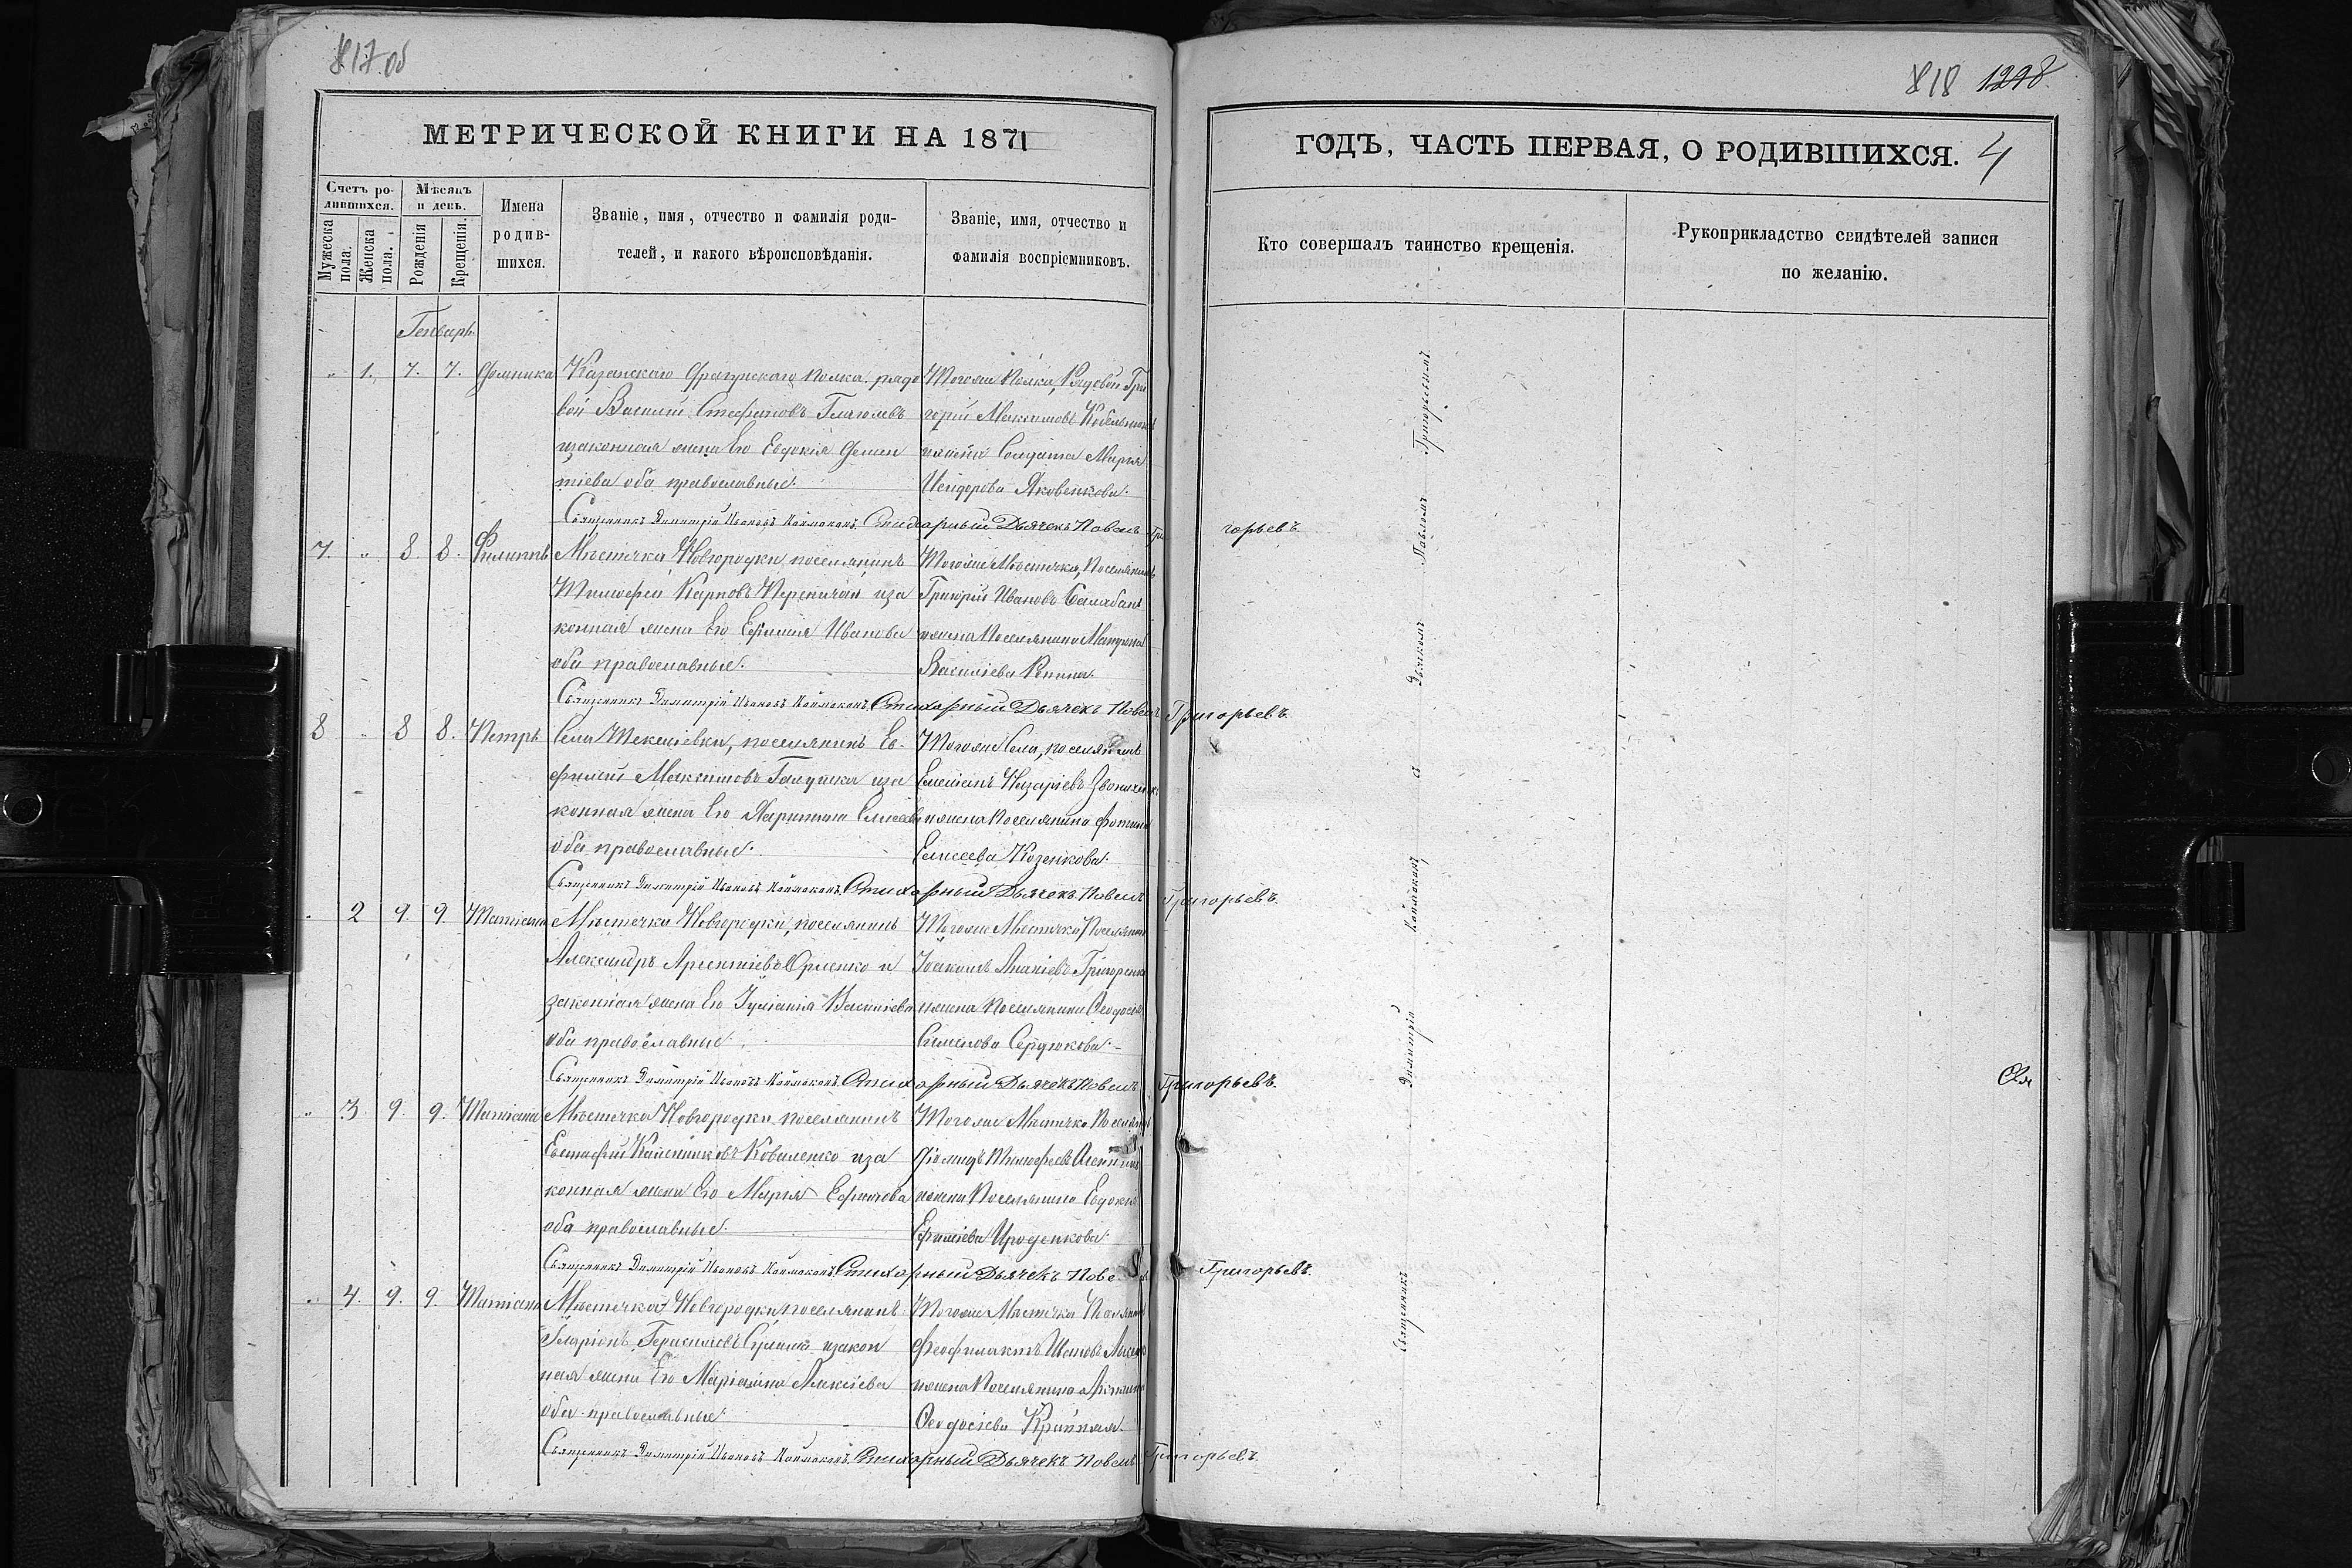 817 об
МЕТРИЧЕСКОЙ КНИГИ НА 1871
Счетъ ро-
дившихся.
Мужеска
пола.
Женска
пола.
Мѣсяцъ
и день.
Рожденія
Крещенія.
Имена
родив-
шихся.
Званіе, имя, отчество и фамилія роди-
телей, и какого вѣроисповѣданія.
Званіе, имя, отчество и
фамилія воспріемниковъ.
Генварь
" 1. 7. 7. Домника Казанскаго Драгунскаго полка рядо
вой Василій Стефановъ
изаконная жена Его Евдокія Демен
тіева оба православные.
Тогоже Полка, Рядовой Гри
горій Максимовъ
ижена Солдата Марія
Исидорова Яковенкова.
Священникъ Димитрій Ивановъ Каймаканъ Стихарный Дьячекъ Павелъ Гри
горьевъ
7. " 8 8. Филиппъ Мѣстечка Новгородки, поселянинъ
Тимофей Карповъ иза
конная жена Его Ефимія Иванова
оба православные.
Тогоже Мѣстечка, Поселянинъ
Григорій Ивановъ Балабанъ
ижена Поселянина Матрона
Василіева Репина.
Священникъ Димитрій Ивановъ Каймаканъ Стихарный Дьячекъ Павелъ Григорьевъ.
8 " 8 8. Петръ Села поселянинъ Ев-
фимій Максимовъ Галушка иза
конная жена Его Харитина Елисеева
оба православные.
Тогоже Села, поселянинъ
Емеліанъ Назаріевъ
ижена Поселянина Фотина
Елисеева Козенкова.
Священникъ Димитрій Ивановъ Каймаканъ Стихарный Дьячекъ Павелъ Григорьевъ.
" 2 9. 9. Татіана Мѣстечка Новгородки, поселянинъ
Александръ Арсентіевъ и
законная жена Его Іуліанія Василіева
оба православные.
Тогоже Мѣстечка Поселянинъ
Іоакимъ Ананіевъ Григоренко
ижена Поселянина Феодосія
Симеонова Сердюкова.
Священникъ Димитрій Ивановъ Каймаканъ Стихарный Дьячекъ Павелъ Григорьевъ.
" 3. 9. 9. Татіана Мѣстечка Новгородки поселянинъ
Евстафій Коваленко иза
конная жена Его Марія Ефимова
оба православные.
Тогоже Мѣстечка Поселянинъ
Діомидъ Тимофеевъ
ижена Поселянина Евдокія
Ефиміева
Священникъ Димитрій Ивановъ Каймаканъ Стихарный Дьячекъ Павелъ Григорьевъ.
" 4. 9. 9. Татіана Мѣстечка Новгородки поселянинъ
Иларіонъ Герасимовъ изакон
ная жена Его Маріамна Алексіева
оба православные
Тогоже Мѣстечка Поселянинъ
Феофилактъ Ивановъ
ижена Поселянина
Феодосіева Крайняя.
Священникъ Димитрій Ивановъ Каймаканъ Стихарный Дьячекъ Павелъ Григорьевъ.
818 1298
ГОДЪ, ЧАСТЬ ПЕРВАЯ, О РОДИВШИХСЯ. 4
Кто совершалъ таинство крещенія.
Рукоприкладство свидѣтелей записи
по желанію.
Священникъ Димитрій Каймаканъ съ Дьячкомъ Павломъ Григорьевымъ